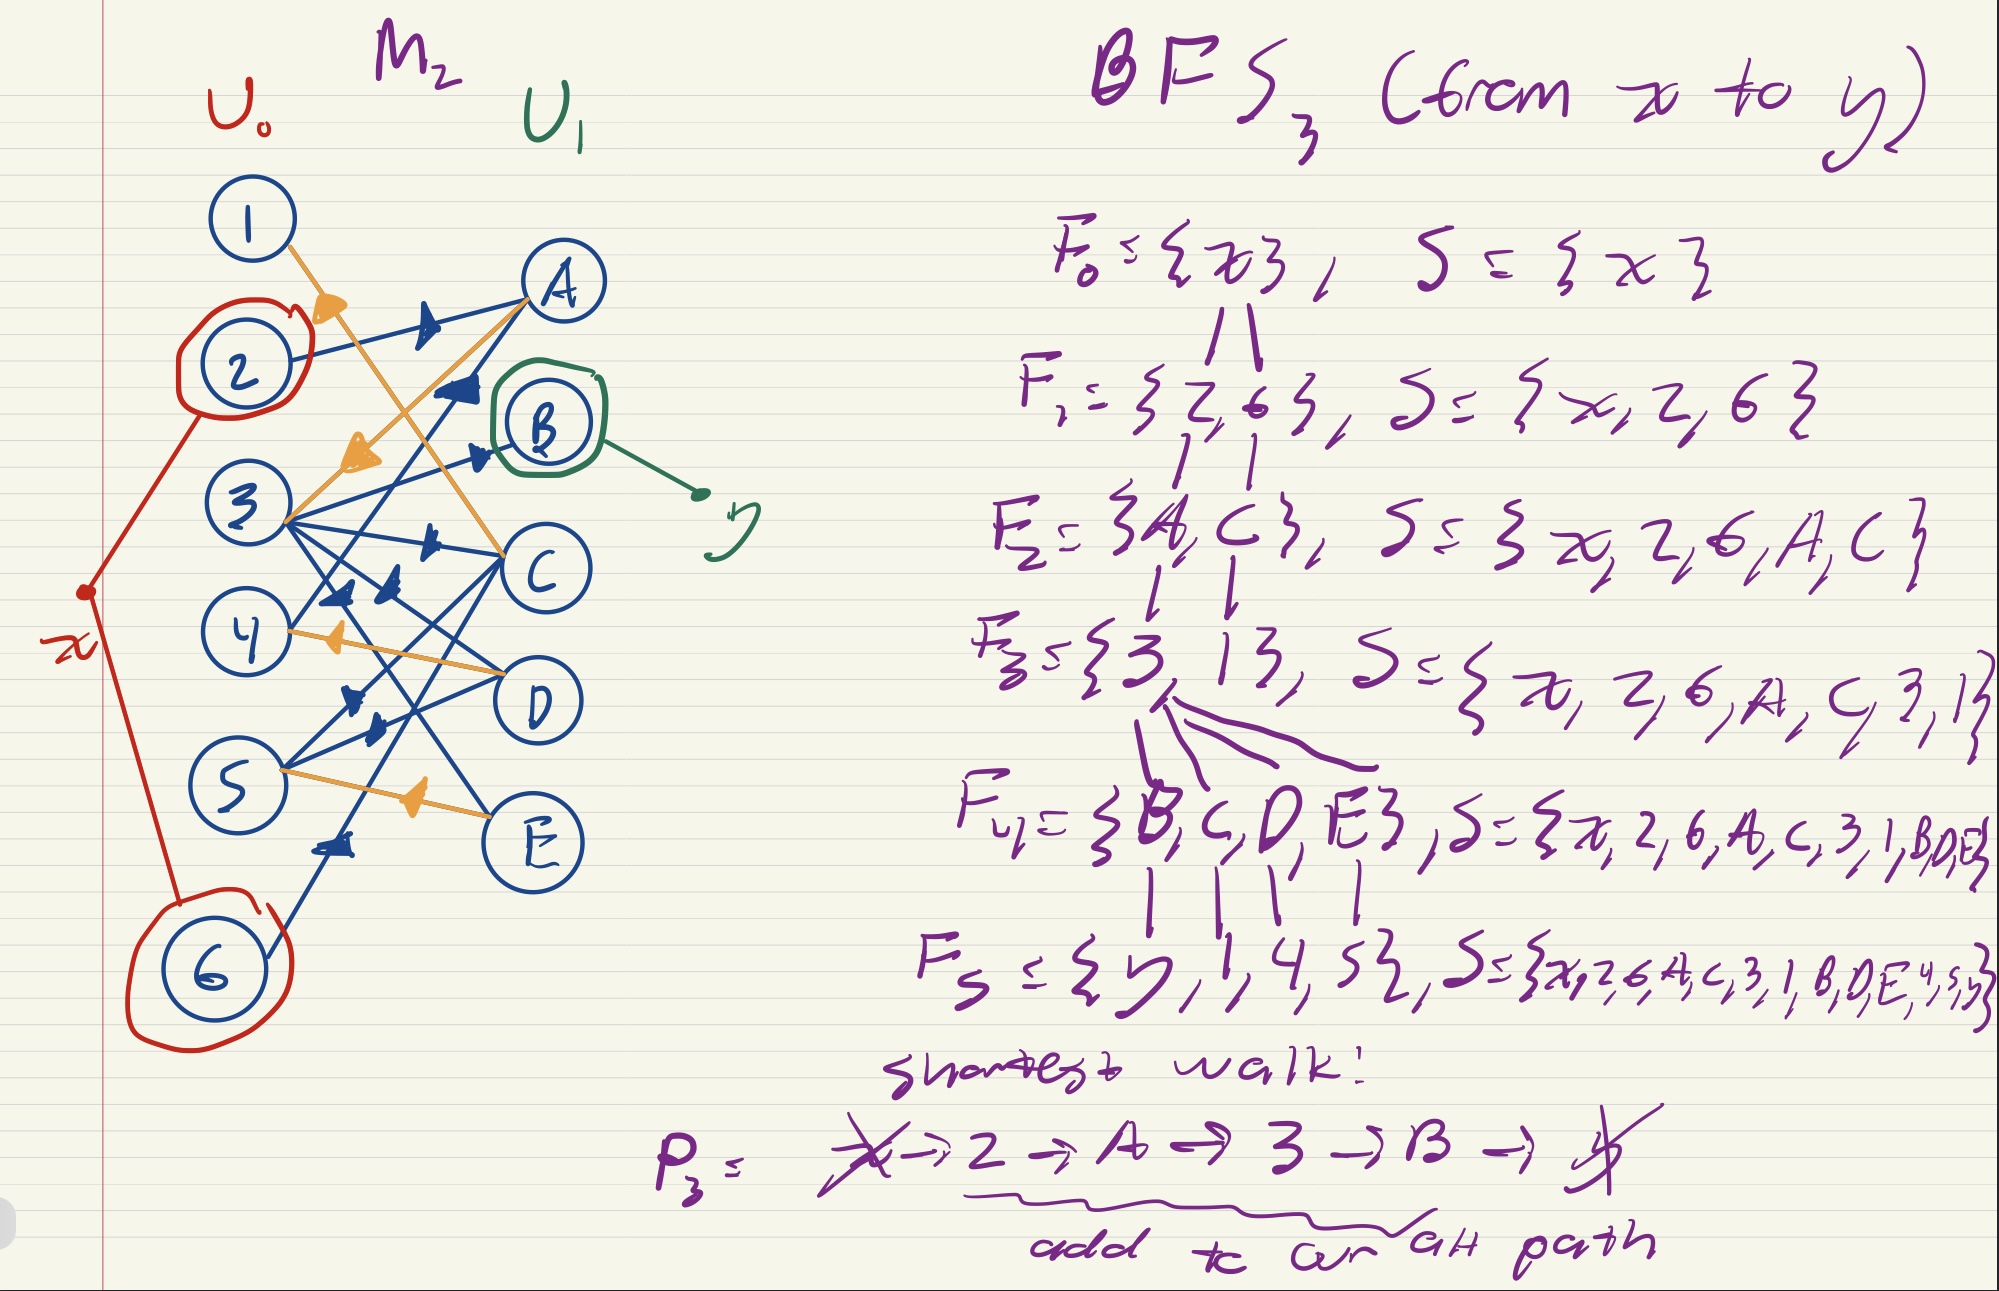 M₂
U₀ U₁
1
A
2
B
3
y
C
4
x
D
5
E
6
BFS₃ (from x to y)
F₀ = {x}, S = {x}
F₁ = {2,6}, S = {x,2,6}
F₂ = {A,C}, S = {x,2,6,A,C}
F₃ = {3,1}, S = {x,2,6,A,C,3,1}
F₄ = {B,C,D,E}, S = {x,2,6,A,C,3,1,B,D,E}
F₅ = {y,1,4,5}, S = {x,2,6,A,C,3,1,B,D,E,4,5,y}
shortest walk:
P₃ = x → 2 → A → 3 → B → y
add to our alt path